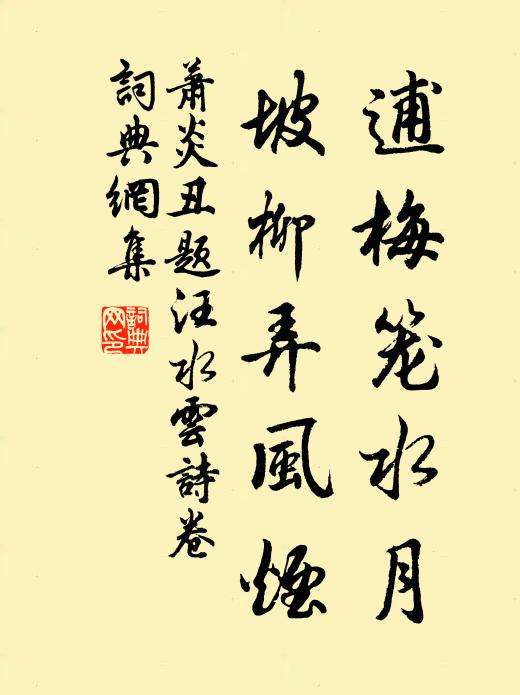 逋梅笼水月
坡柳弄風煙
萧炎丑题汪水雲詩卷
詞典網集
詞典
网印